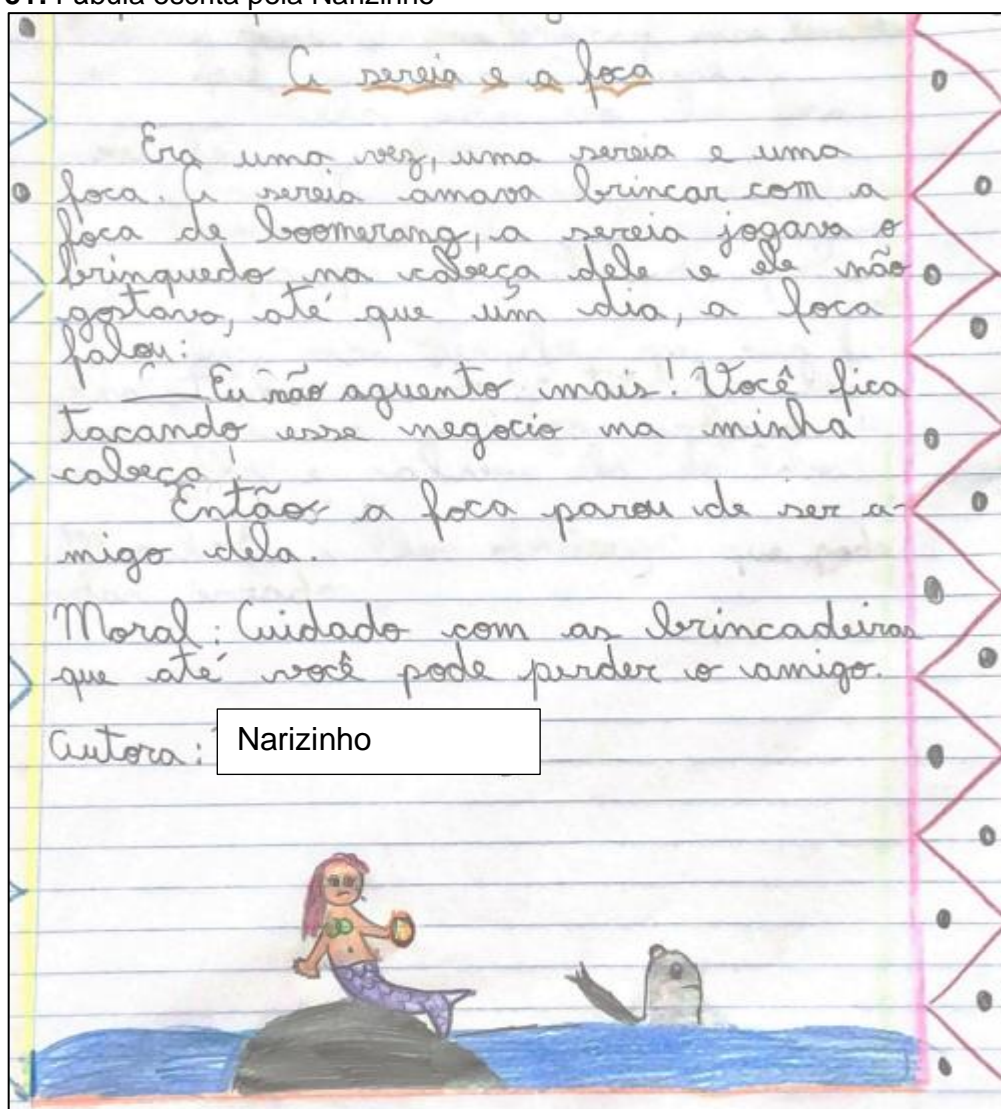 A sereia e a foca
Era uma vez, uma sereia e uma
foca. A sereia amava brincar com a
foca de boomerang, a sereia jogava o
brinquedo na cabeça dele e ele não
gostava, até que um dia, a foca
falou:
— Eu não aguento mais! Você fica
tacando esse negocio na minha
cabeça!
Então a foca parou de ser a-
migo dela.
Moral: Cuidado com as brincadeiras
que até você pode perder o amigo.
Autora: Narizinho